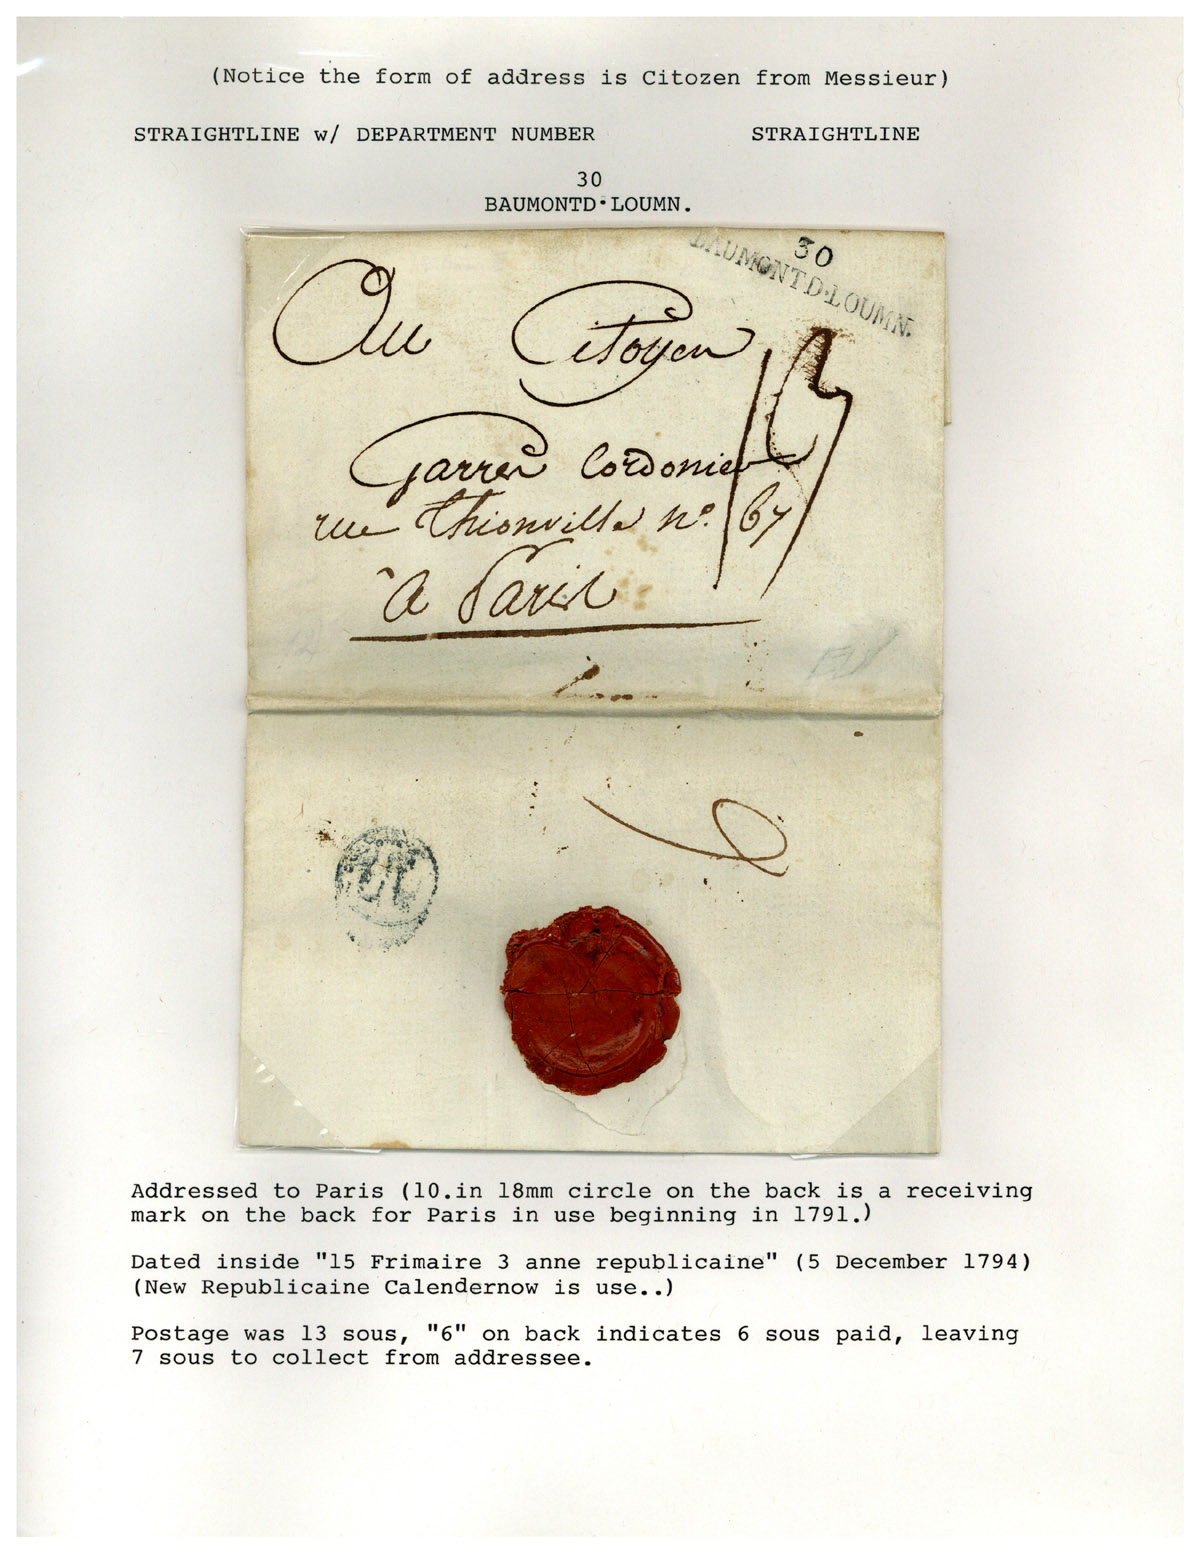 (Notice the form of address is Citozen from Messieur)
STRAIGHTLINE w/ DEPARTMENT NUMBER STRAIGHTLINE
30
BAUMONTD•LOUMN.
30
BAUMONTD•LOUMN.
Au Citoyen
Garren Cordonier
rue thionville n°. 67
à Paris
13
6
Addressed to Paris (10.in 18mm circle on the back is a receiving
mark on the back for Paris in use beginning in 1791.)
Dated inside "15 Frimaire 3 anne republicaine" (5 December 1794)
(New Republicaine Calendernow is use..)
Postage was 13 sous, "6" on back indicates 6 sous paid, leaving
7 sous to collect from addressee.